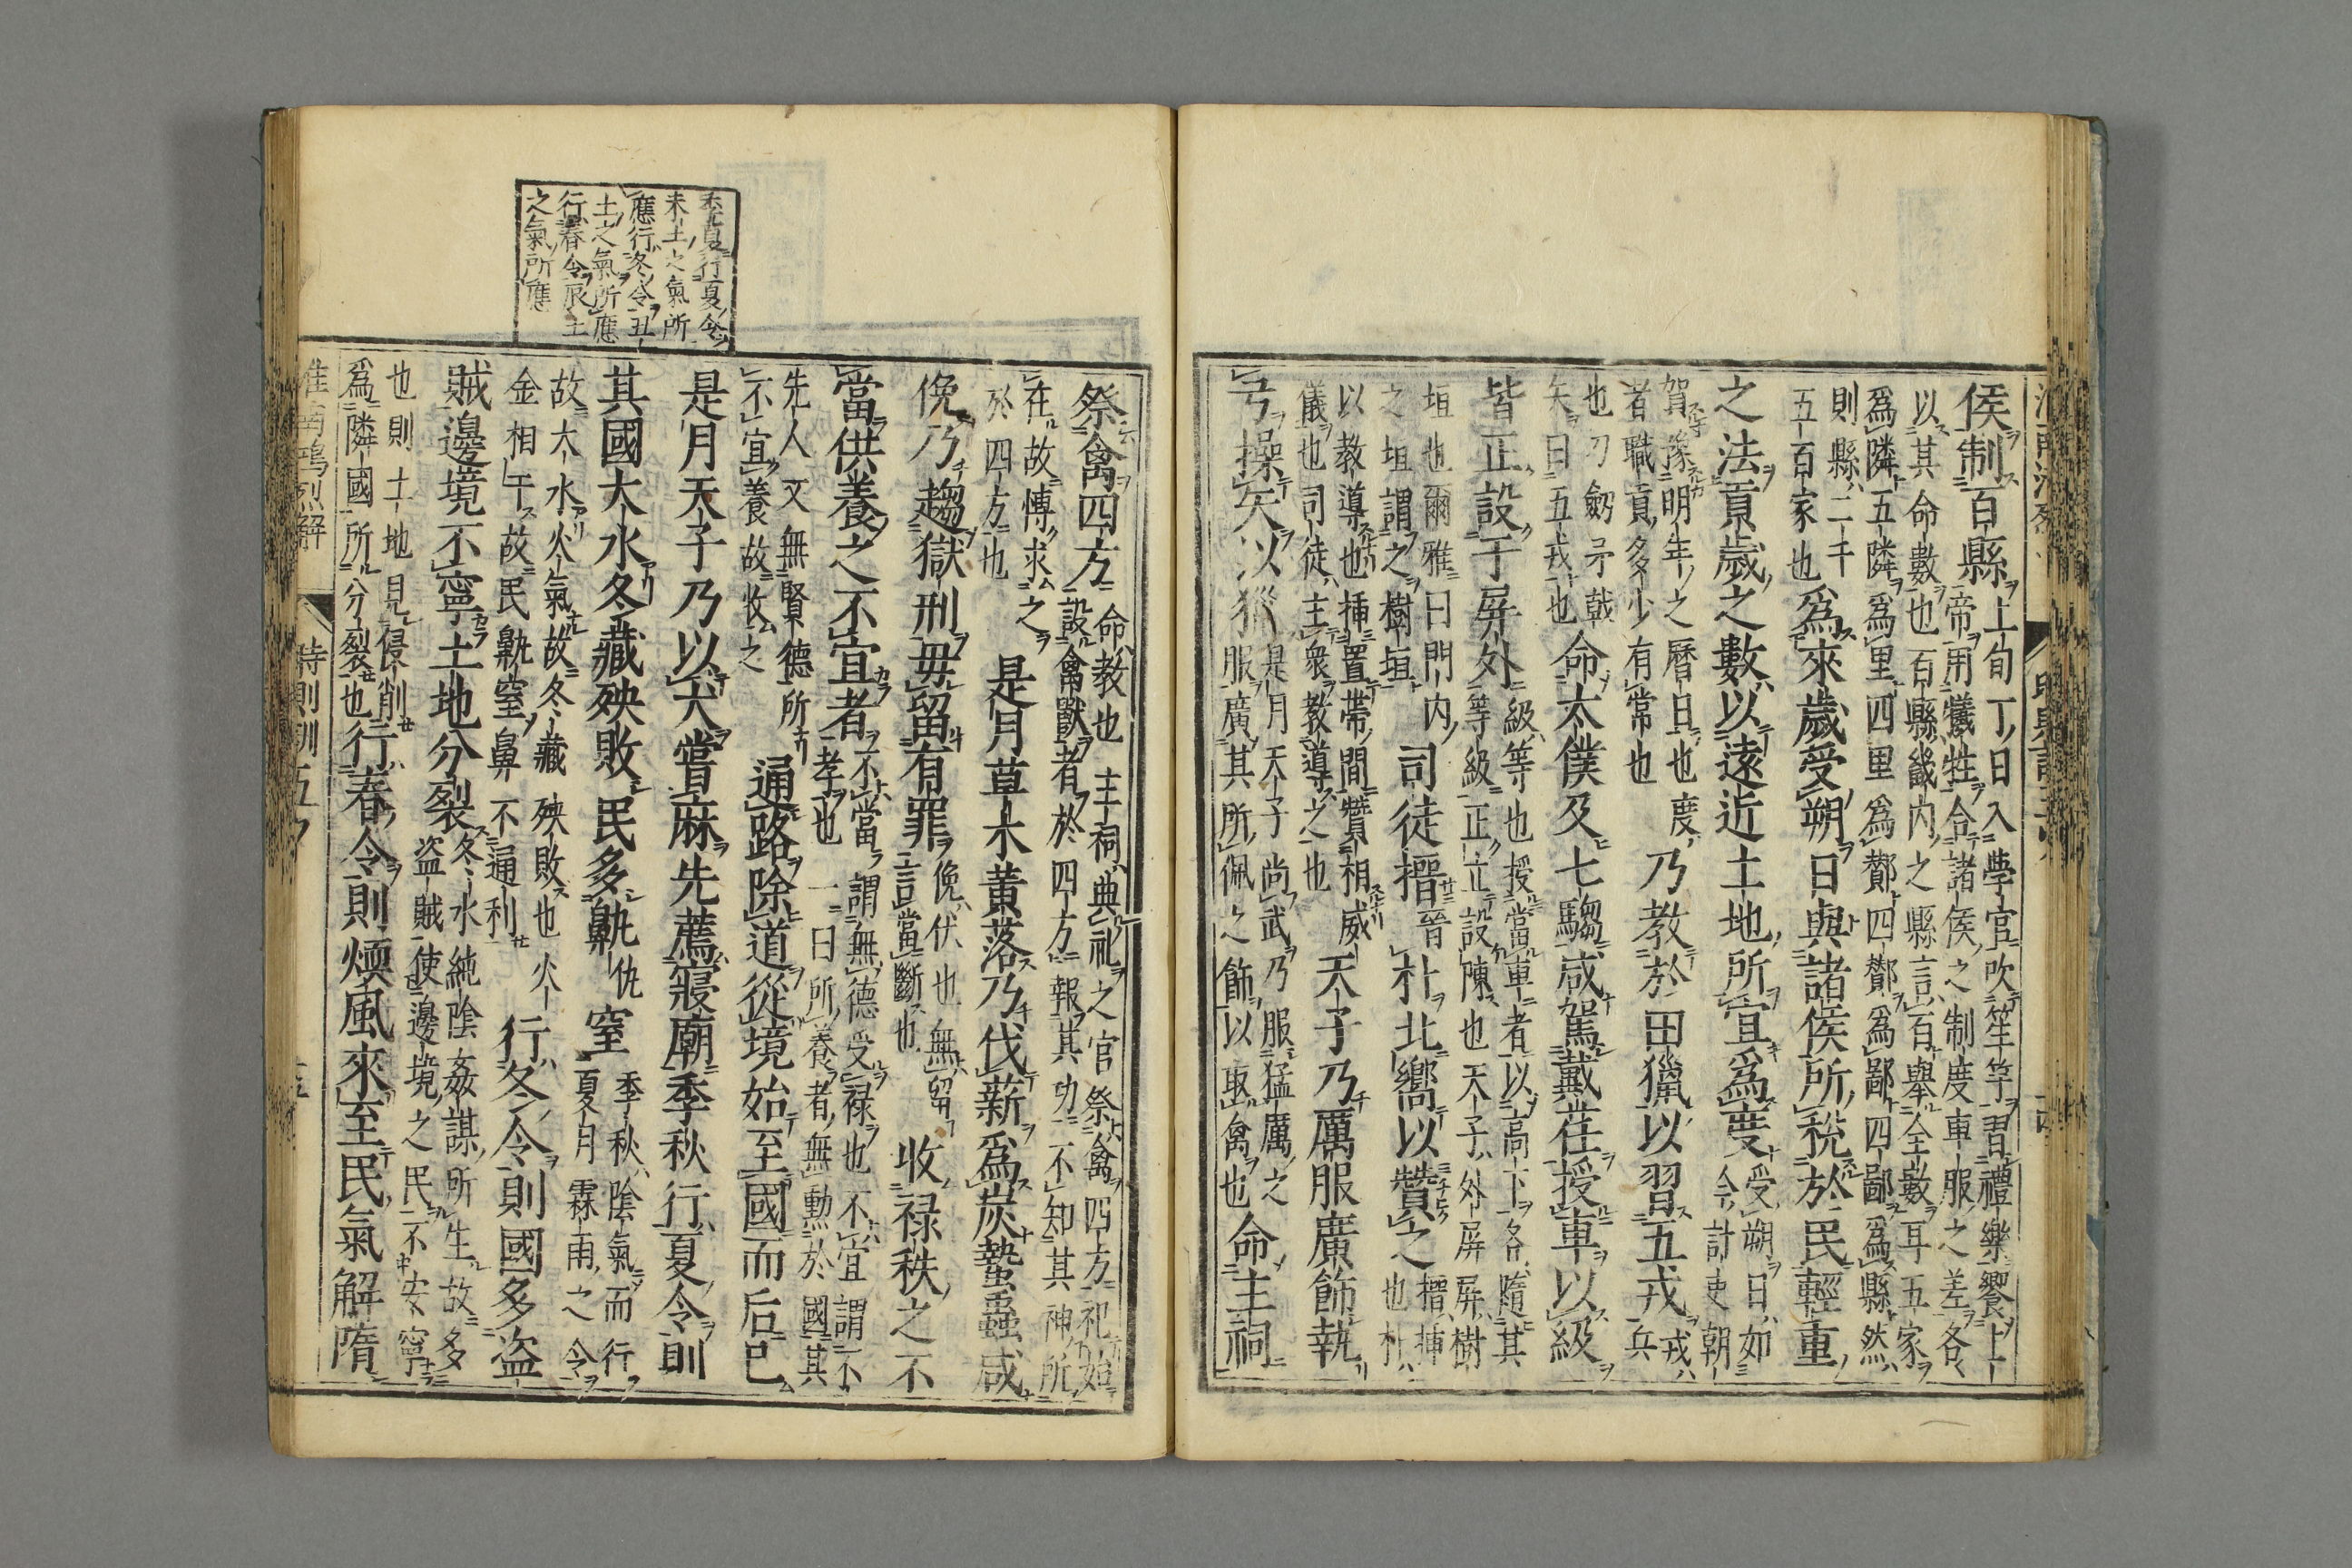 侯制百縣
上旬丁日入學官吹笙竽習禮樂饗上
帝用犧牲合諸侯之制度車服之差各
以其命數也百縣畿内之縣言百舉全數耳五家
爲隣五隣爲里四里爲酇四酇爲鄙四鄙爲縣然
則縣二千
五百家也
爲來歲受朔日與諸侯所稅於民輕重
之法貢歲之數以遠近土地所宜爲度
受朔日如
今計吏朝
賀豫明年之曆日也度
者職貢多少有常也
乃教於田獵以習五戎
戎
兵
也刃劔矛戟
矢曰五戎也
命太僕及七騶咸駕戴荏授車以級
皆正設于屏外
級等也授當車者以高下各隨其
等級正立設陳也天子外屏屏樹
垣也爾雅曰門内
之垣謂之樹垣
司徒搢晉朴北嚮以贊之
搢插
也朴
以教導也插置帶間贊相威
儀也司徒主衆教導之也
天子乃厲服廣飾執
弓操矢以獵
是月天子尚武乃服猛厲之
服廣其所佩之飾以取禽也
命主祠
祭禽四方
命教也主祠典祀之官祭禽四方祀始
設禽獸者於四方報其功不知其神所
在故博求之
於四方也
是月草木黃落乃伐薪爲炭蟄蟲咸
俛乃趨獄刑毋留有罪
俛伏也無留
言當斷也
收禄秩之不
當供養之不宜者
不當謂無德受禄也不宜謂不
孝也一曰所養者無勳於國其
先人又無賢德所
不宜養故收之
通路除道從境始至國而后已
是月天子乃以犬嘗麻先薦寢廟季秋行夏令則
其國大水冬藏殃敗民多鼽仇窒
季秋陰氣而行
夏月霖雨之令
故大水火氣故冬藏殃敗也火
金相干故民鼽窒鼻不通利
行冬令則國多盗
賊邊境不寧土地分裂
冬水純陰姦謀所生故多
盗賊使邊境之民不安寧
也則土地見侵削
爲隣國所分裂也
行春令則煗風來至民氣解隋
淮南鴻烈解
時則訓五
季夏行夏令
未土之氣所
應行冬令丑
土之氣所應
行春令辰土
之氣所應